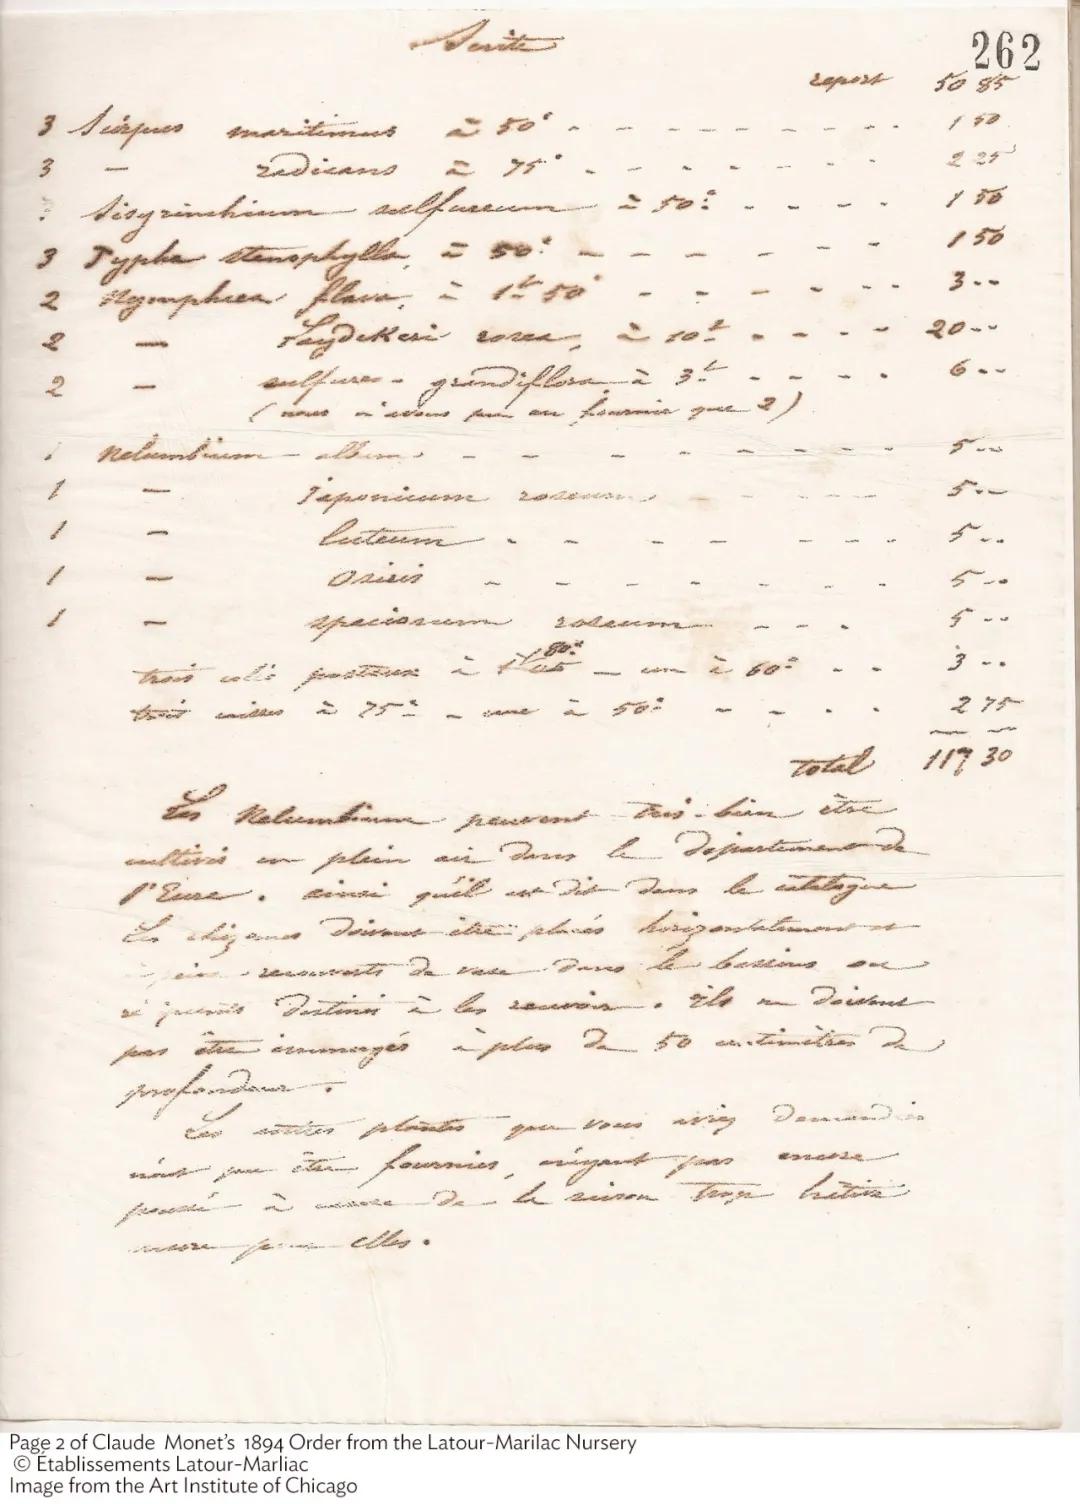 Suite
262
report 50 85
3 Scirpus maritimus à 50c 1 50
3 — radicans à 75c 2 25
Sisyrinchium sulfureum à 50c 1 50
3 Typha stenophylla, à 50c 1 50
2 Nymphea flava, à 1f 50c 3 "
2 — Laydekeri rosea, à 10f 20 "
2 — sulfurea - grandiflora à 3f 6 "
(nous n'avons pu en fournir que 2)
1 Nelumbium album 5 "
1 — Japonicum roseum 5 "
1 — luteum 5 "
1 — Osiris 5 "
1 — speciosum roseum 5 "
trois colis postaux à 80c — un à 60c 3 "
trois caisses à 75c — une à 50c 2 75
total 117 30
Les Nelumbium peuvent très-bien être
cultivés en plein air dans le département de
l'Eure. ainsi qu'il est dit dans le catalogue
les rhizomes doivent être placés horizontalement et
recouverts de vase dans le bassins ou
destinés à les recevoir. Ils ne doivent
pas être immergés à plus de 50 centimètres de
profondeur.
Les autres plantes que vous aviez demandées
n'ont pu être fournies, n'ayant pas encore
poussé à cause de la saison trop hâtive
encore pour elles.
Page 2 of Claude Monet's 1894 Order from the Latour-Marilac Nursery
© Établissements Latour-Marliac
Image from the Art Institute of Chicago